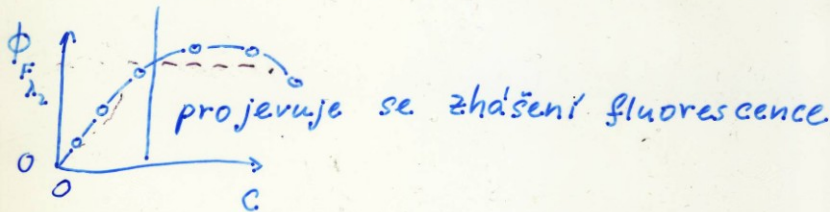 Φ
F
λ₂
projevuje se zhášení fluorescence
0
0
C